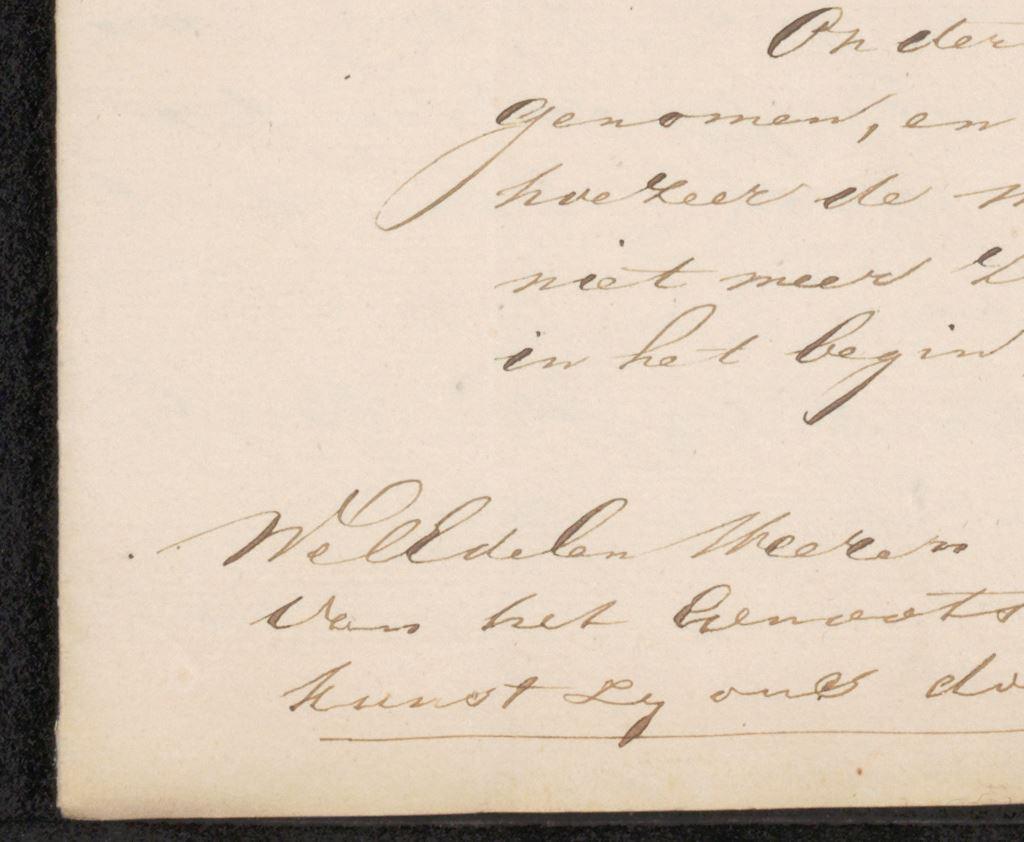 Onder
genomen, en
hoezeer de
niet meer
in het begin
WelEdelen Heeren
van het Genoots
kunst zy ons do